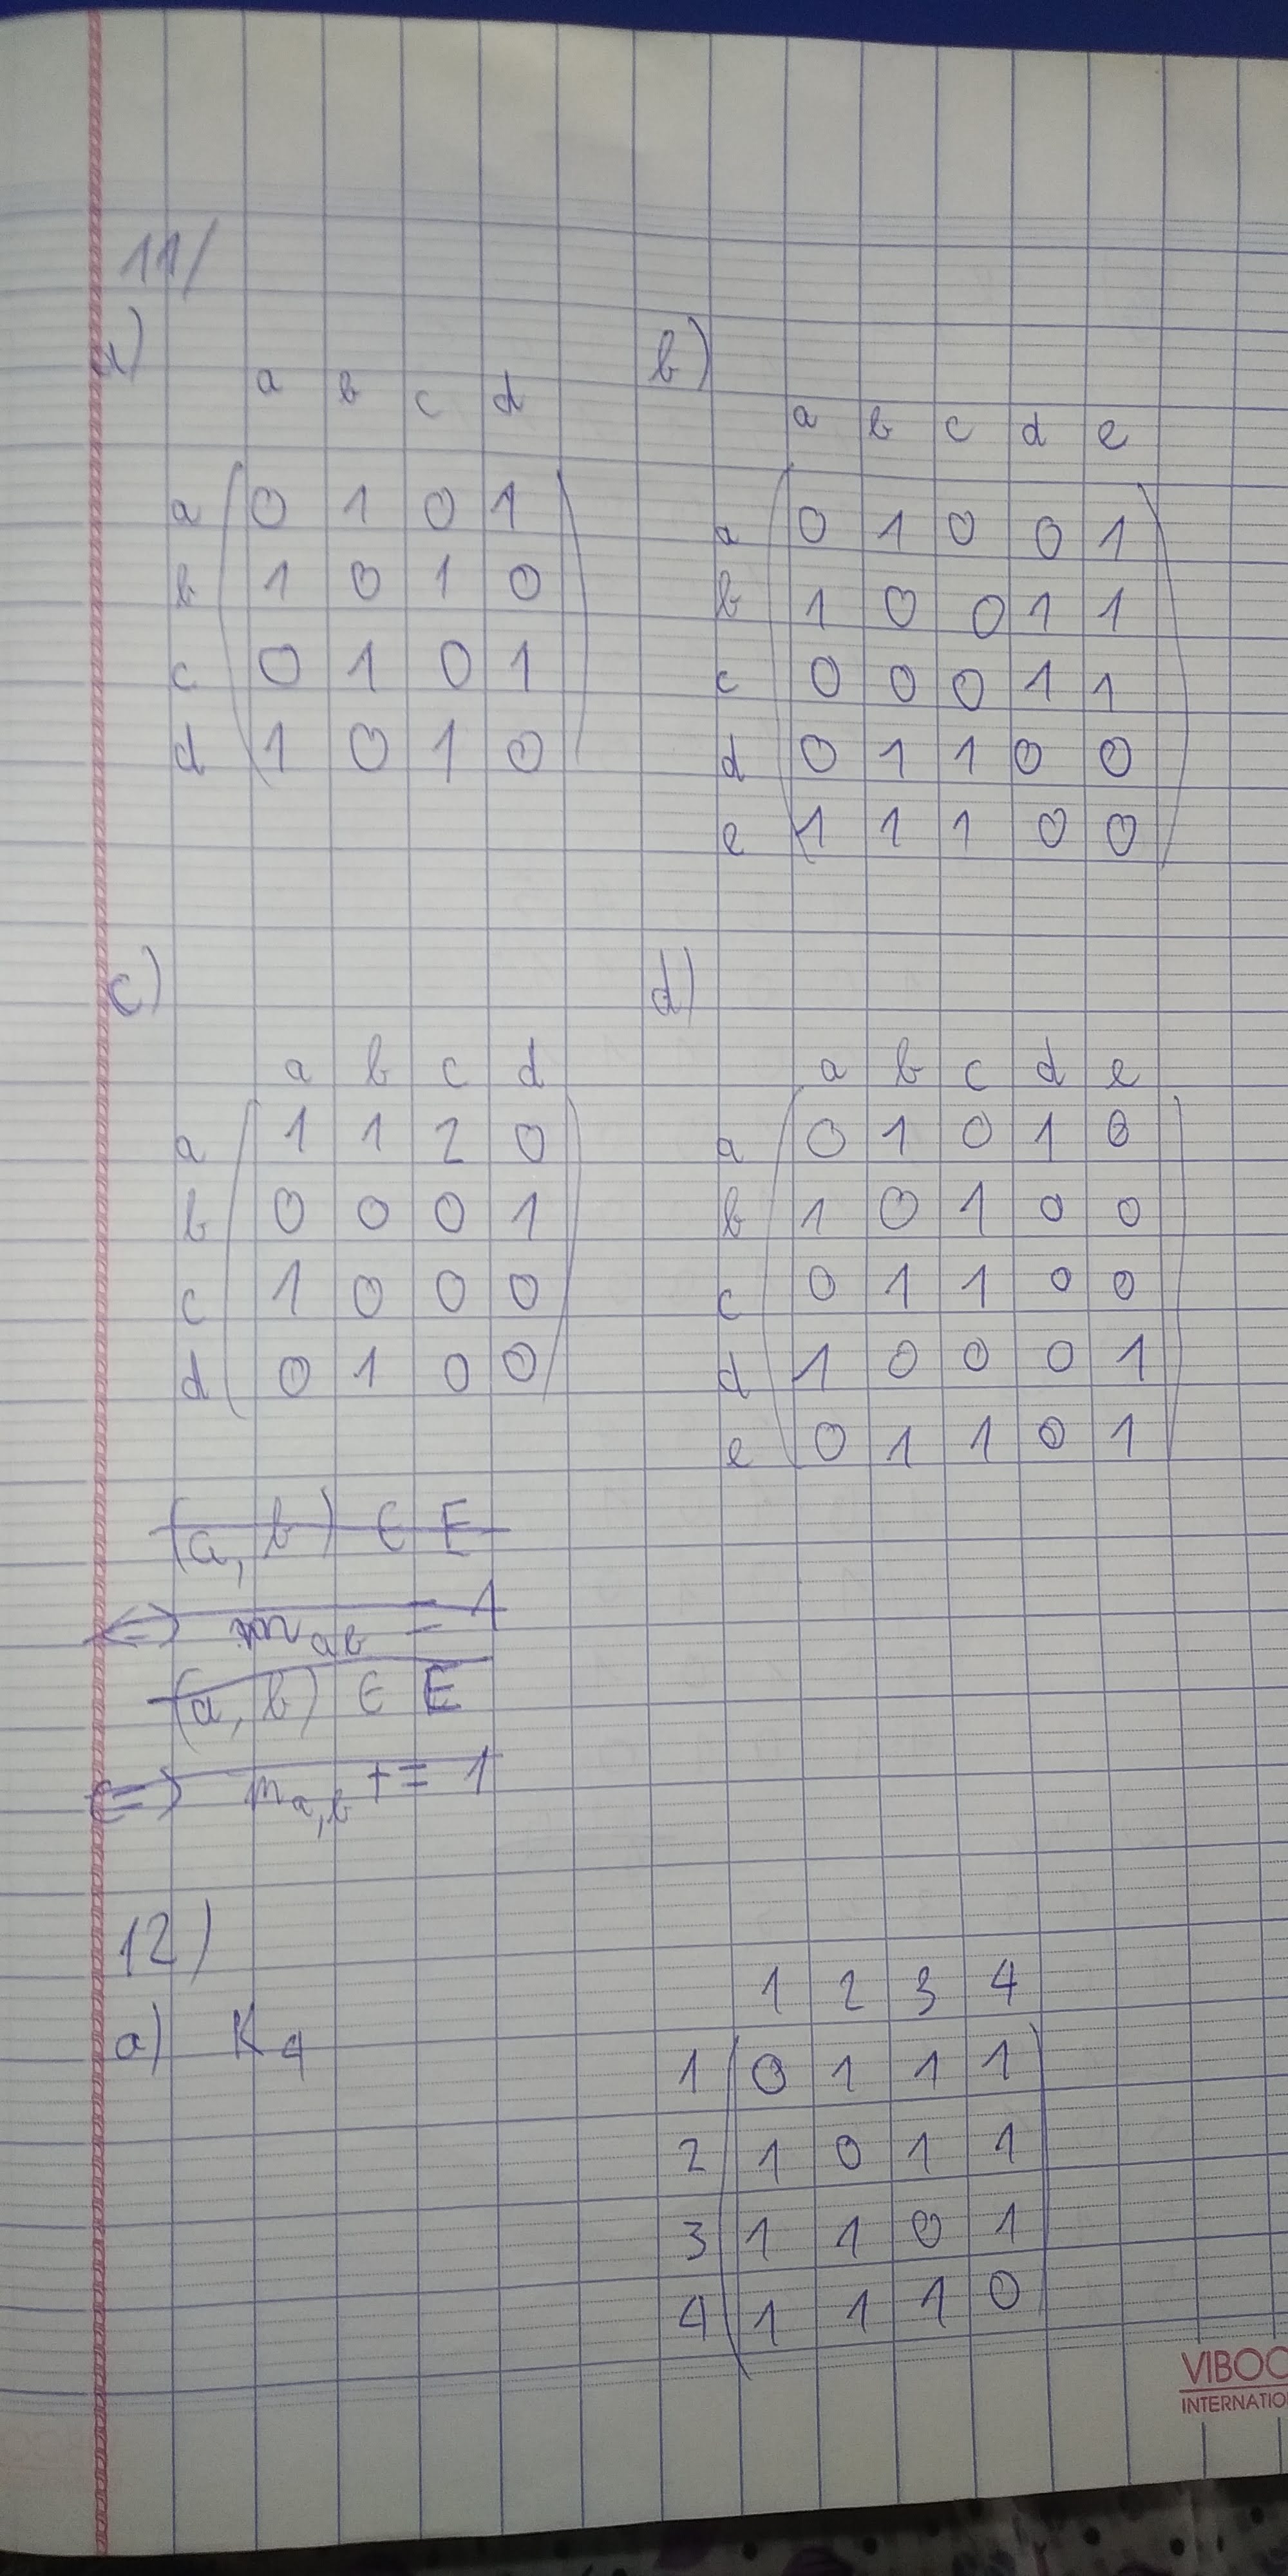 11/
a)
a b c d
a 0 1 0 1
b 1 0 1 0
c 0 1 0 1
d 1 0 1 0
b)
a b c d e
a 0 1 0 0 1
b 1 0 0 1 1
c 0 0 0 1 1
d 0 1 1 0 0
e 1 1 1 0 0
c)
a b c d
a 1 1 2 0
b 0 0 0 1
c 1 0 0 0
d 0 1 0 0
d)
a b c d e
a 0 1 0 1 0
b 1 0 1 0 0
c 0 1 1 0 0
d 1 0 0 0 1
e 0 1 1 0 1
(a, b) ∈ E
<=> m ab = 1
(a, b) ∈ E
<=> m a,b += 1
12)
a) K4
1 2 3 4
1 0 1 1 1
2 1 0 1 1
3 1 1 0 1
4 1 1 1 0